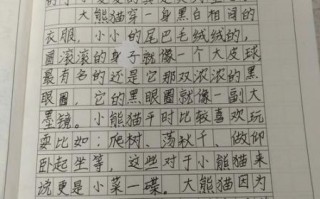 大熊猫穿一身黑白相间的
衣服,小小的尾巴毛绒绒的,
圆滚滚的身子就像一个大皮球
最有名的还是它那双浓浓的黑
眼圈,它的黑眼圈就像一副大
墨镜。小熊猫平时比较喜欢玩
耍比如:爬树、荡秋千、做仰
卧起坐等,这些对于小熊猫来
说更是小菜一碟。大熊猫因为